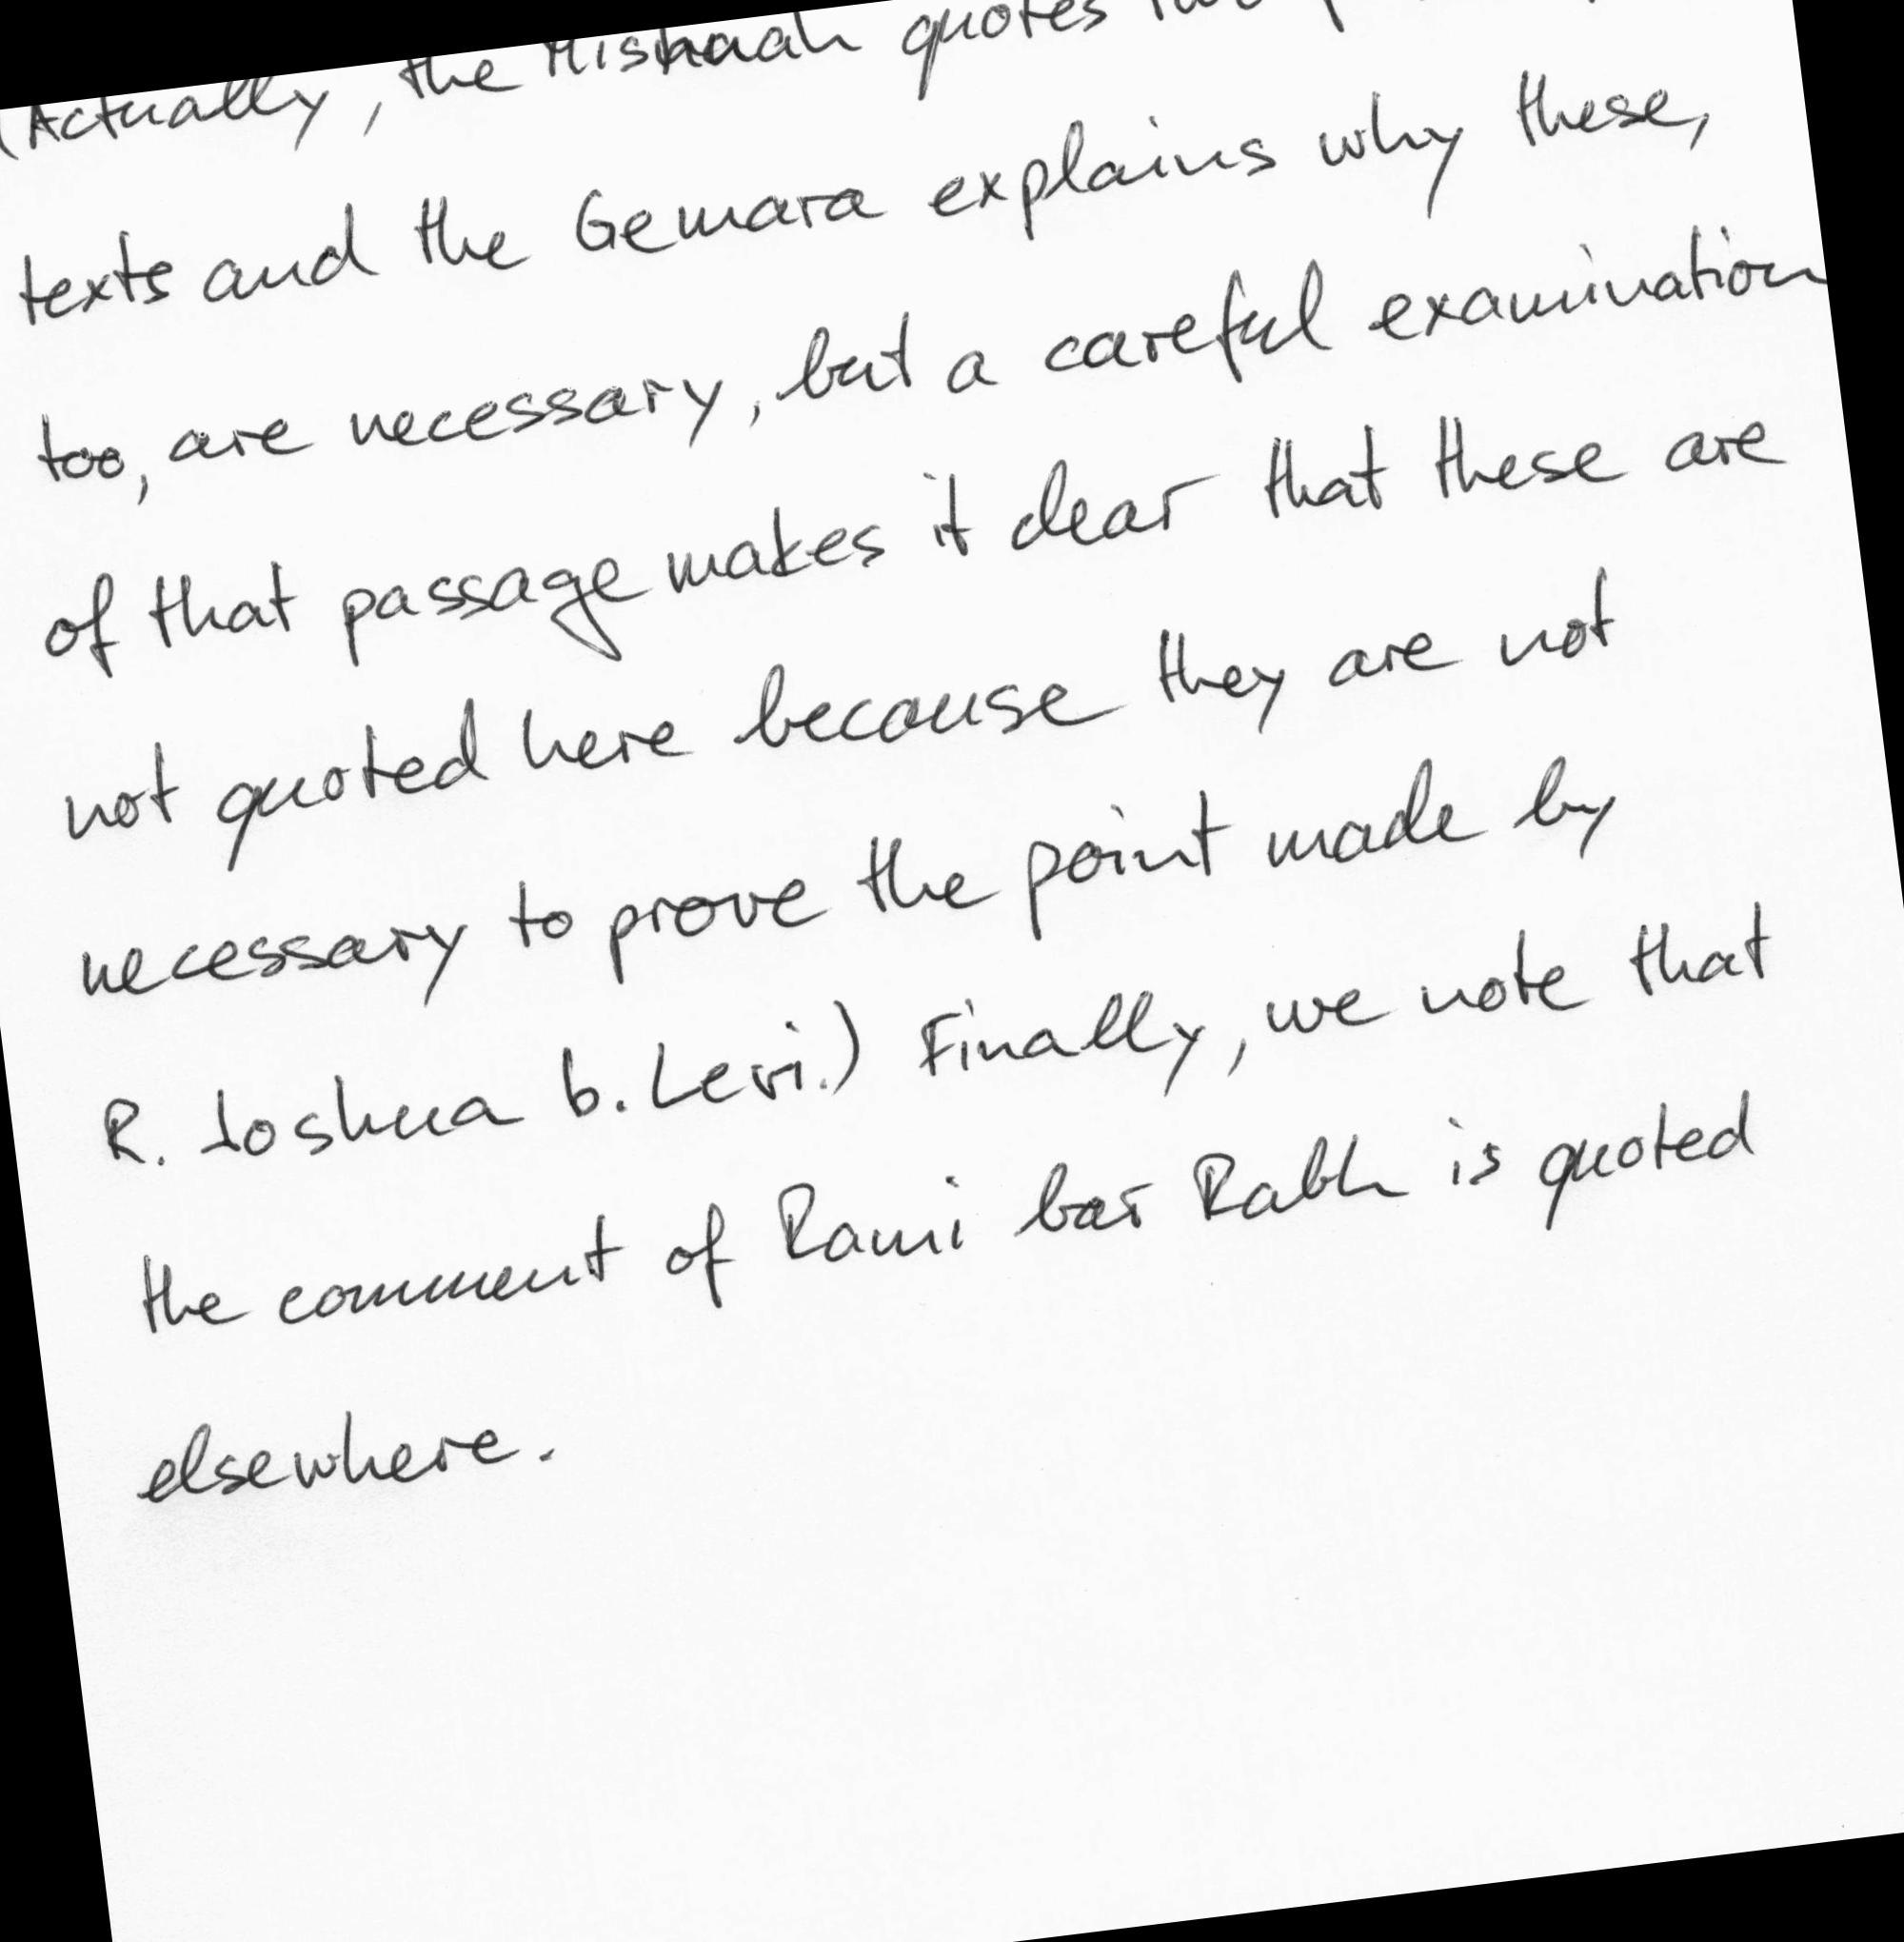 (Actually, the Mishnah quotes
texts and the Gemara explains why these,
too, are necessary, but a careful examination
of that passage makes it clear that these are
not quoted here because they are not
necessary to prove the point made by
R. Joshua b. Levi.) Finally, we note that
the comment of Rami bar Rabh is quoted
elsewhere.